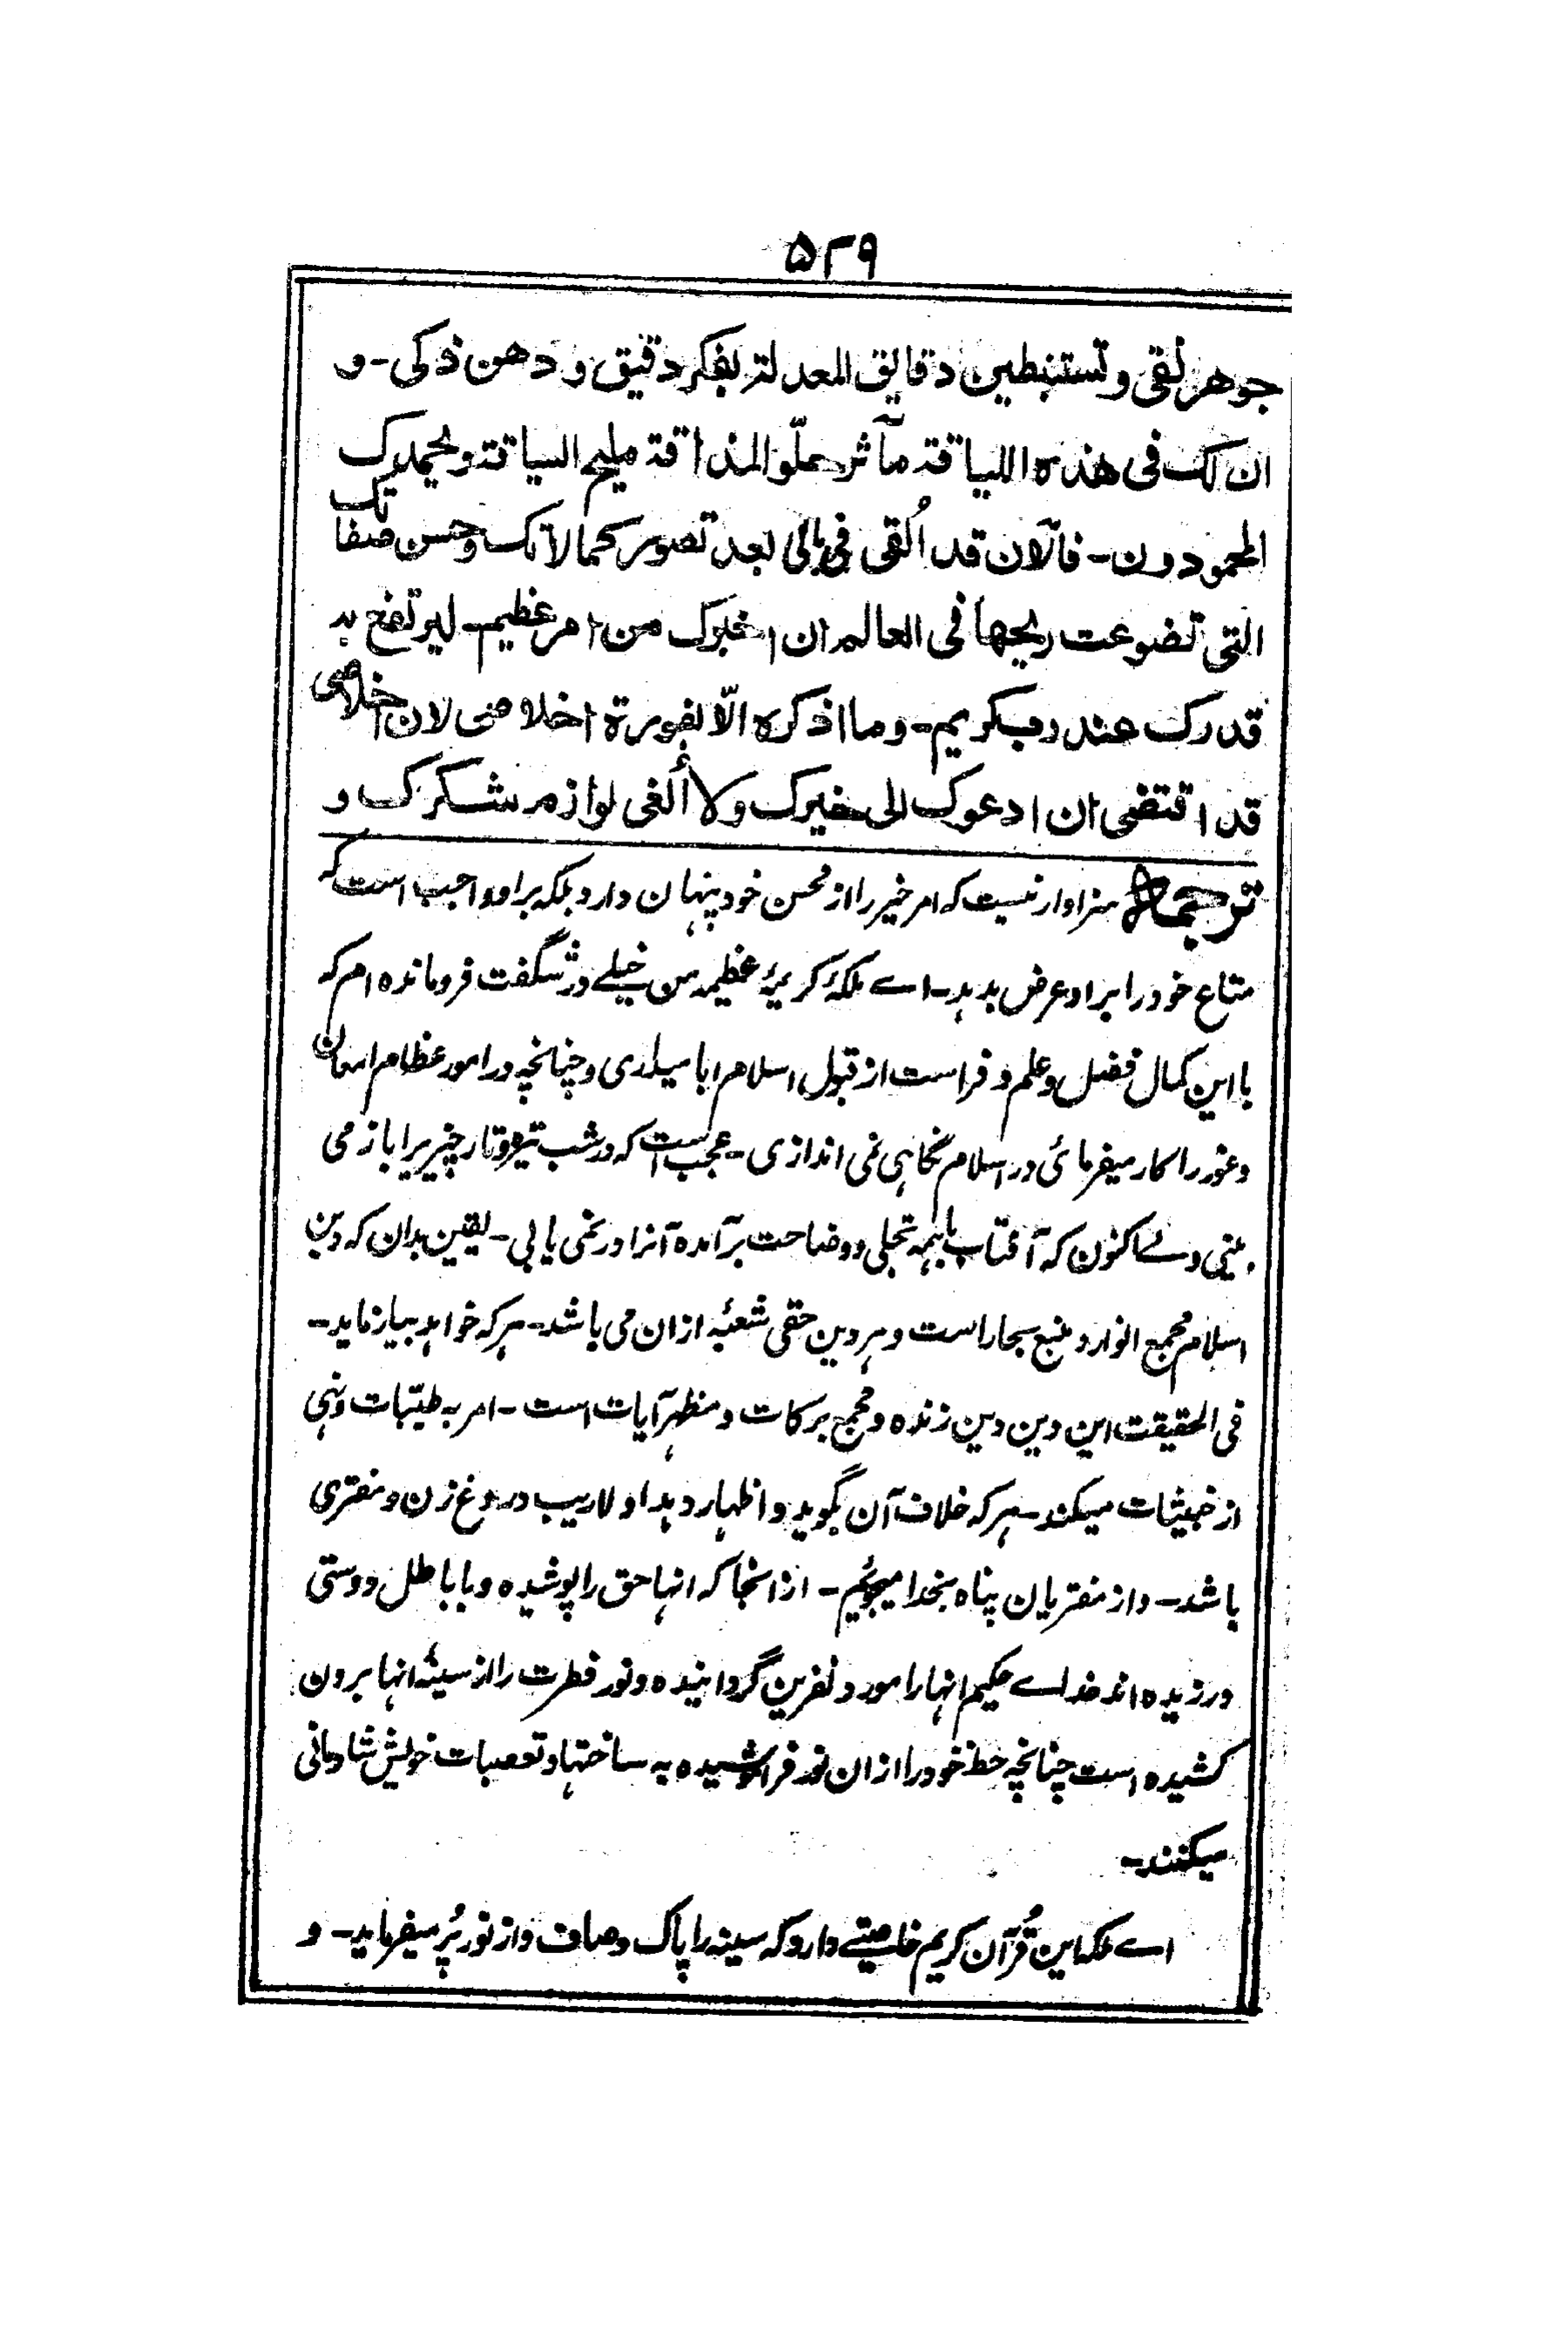 ۵۲۹
جوهر نقى وتستنبطين دقايق المعدلة بفكر دقيق و دهن ذكى - و
ان لك فى هذه اللياقة مآثر حلّو المذاقة مليح السياقة ويحمدك
المحمودون - فالآن قد اُلقى فى بالى بعد تصور كمالاتك وحسن صفاتك
التى تضوعت ريحها فى العالم ان اخبرك من امر عظيم - ليرتفع به
قدرك عند رب كريم - وما اذكره الّا بفورة اخلاصى لان اخلاصى
قد اقتضى ان ادعوك الى خيرك ولا أُلغى لوازم شكرك و
ترجمه سزاوار نیست که امر خیر را از محسن خود پنهان دارد بلکه بر او واجب است که
متاع خود را بر او عرض بدہد - اے ملکۂ کریمۂ عظیمہ من خیلے در شگفت فرو ماندہ ام کہ
با این کمال فضل و علم و فراست از قبول اسلام ابا میداری و چنانچہ در امور عظام امعان
و غور را کار میفرمائی در اسلام نگاہی نمی اندازی - عجب است کہ در شب تیرہ و تار چیزیرا باز می
بینی ولے اکنون کہ آفتاب باہمہ تجلی و وضاحت برآمدہ آنرا در نمی یابی - یقین بدان کہ دین
اسلام مجمع انوار و منبع بحار است و ہر دین حقی شعبۂ ازان می باشد - ہر کہ خواہد بیازماید -
فی الحقیقت این دین دین زندہ و مجمع برکات و مظہر آیات است - امر بہ طیّبات و نہی
از خبیثات میکند - ہر کہ خلاف آن بگوید و اظہار دہد او لاریب دروغ زن و مفتری
باشد - و از مفتریان پناہ بخدا میجوئیم - از انجا کہ انہا حق را پوشیدہ و با باطل دوستی
ورزیدہ اند خداے حکیم انہا را مورد نفرین گردانیدہ و نور فطرت را از سینۂ انہا برون
کشیدہ است چنانچہ حظ خود را ازان نور فراموشیدہ بہ ساختہا و تعصبات خویش شادمانی
میکنند -
اے ملکہ این قُرآن کریم خاصیتے دارد کہ سینہ را پاک و صاف و از نور پُر میفرماید - و